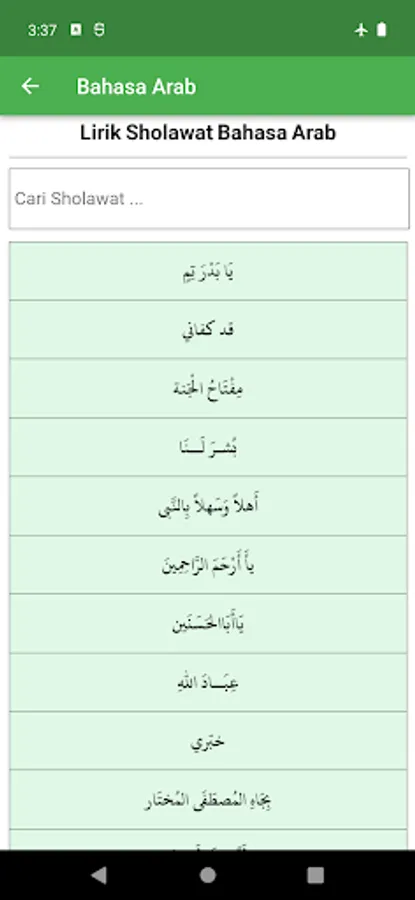 3:37
Bahasa Arab
Lirik Sholawat Bahasa Arab
Cari Sholawat ...
يَا بَدْرَ تِمٍ
قد كفاني
مِفْتَاحُ الْجَنة
بُشـرَ لَــنَا
أَهلاً وَسَهلاً بِالنَّبِى
يأَ أَرْحَمَ الرَّاحِمِينَ
يَاأَبَاالحَسَنَين
عِبَــادَ اللهِ
خبّري
بِجَاهِ المُصطَفَى المُختَار